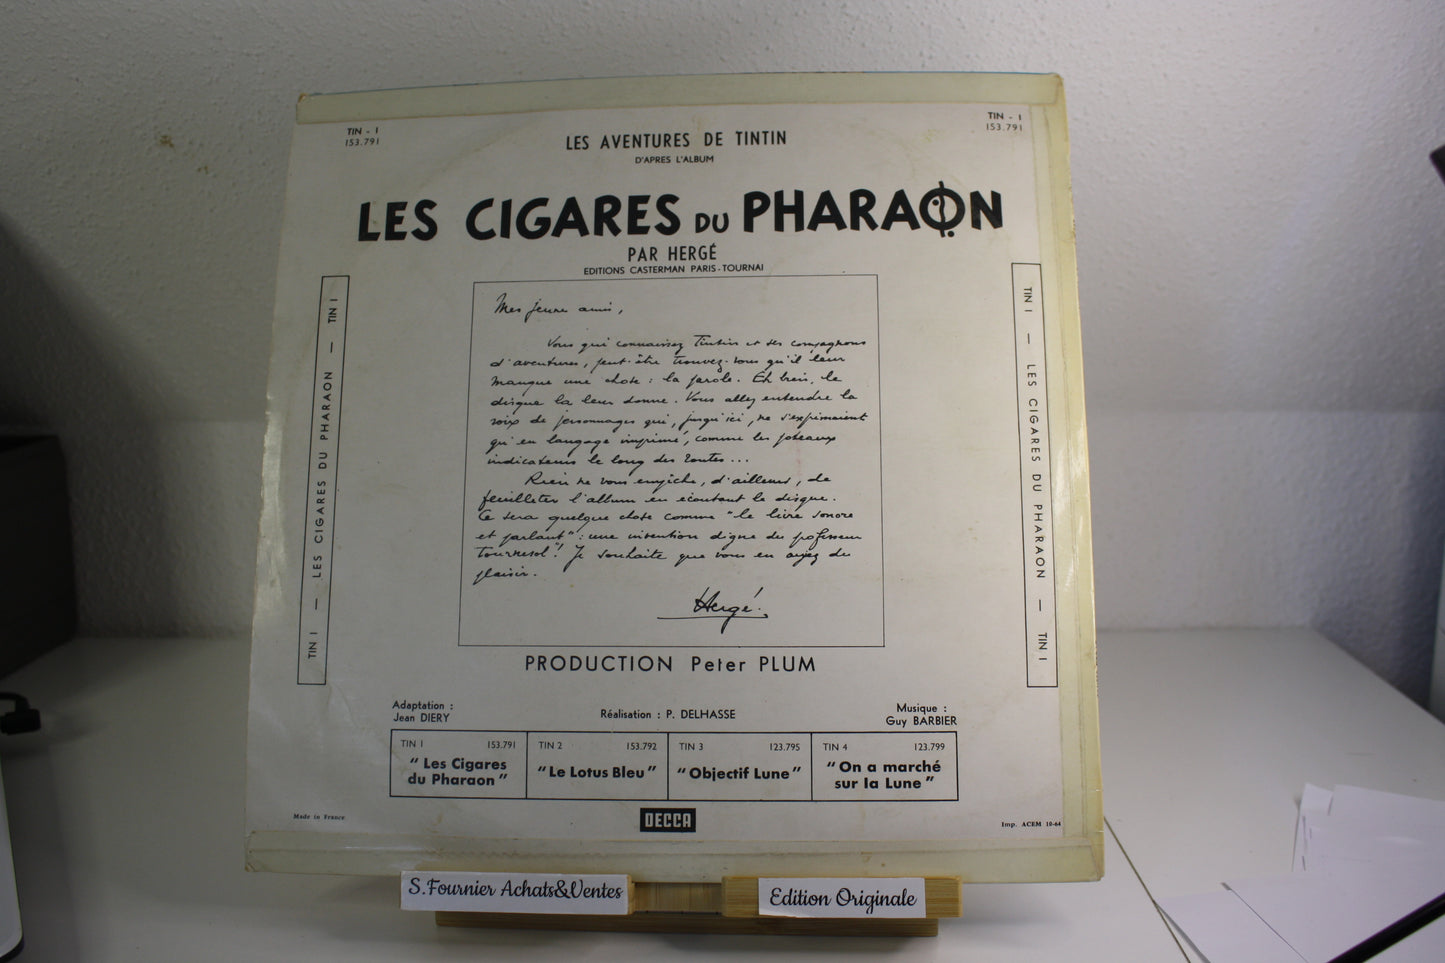 TIN - 1
153.791
TIN - 1
153.791
LES AVENTURES DE TINTIN
D'APRES L'ALBUM
LES CIGARES DU PHARAON
PAR HERGÉ
EDITIONS CASTERMAN PARIS-TOURNAI
TIN 1 — LES CIGARES DU PHARAON — TIN 1
Mes jeunes amis,
Vous qui connaissez Tintin et ses compagnons
d'aventures, peut-être trouvez-vous qu'il leur
manque une chose : la parole. Eh bien, le
disque la leur donne. Vous allez entendre la
voix de personnages qui, jusqu'ici, ne s'exprimaient
qu'en langage imprimé, comme les poteaux
indicateurs le long des routes...
Rien ne vous empêche, d'ailleurs, de
feuilleter l'album en écoutant le disque.
Ce sera quelque chose comme "le livre sonore
et parlant" : une invention digne du professeur
Tournesol ! Je souhaite que vous en ayez du
plaisir.
Hergé.
TIN 1 — LES CIGARES DU PHARAON — TIN 1
PRODUCTION Peter PLUM
Adaptation :
Jean DIERY
Réalisation : P. DELHASSE
Musique :
Guy BARBIER
TIN 1 153.791
"Les Cigares
du Pharaon"
TIN 2 153.792
"Le Lotus Bleu"
TIN 3 123.795
"Objectif Lune"
TIN 4 123.799
"On a marché
sur la Lune"
Made in France
DECCA
Imp. ACEM 10-64
S.Fournier Achats&Ventes
Edition Originale